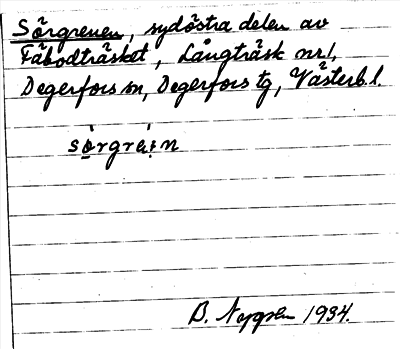 Sörgrenen, sydöstra delen av
Fäbodträsket, Långträsk nr 1,
Degerfors sn, Degerfors tg, Västerb. l.
sörgrein
B. 1934.